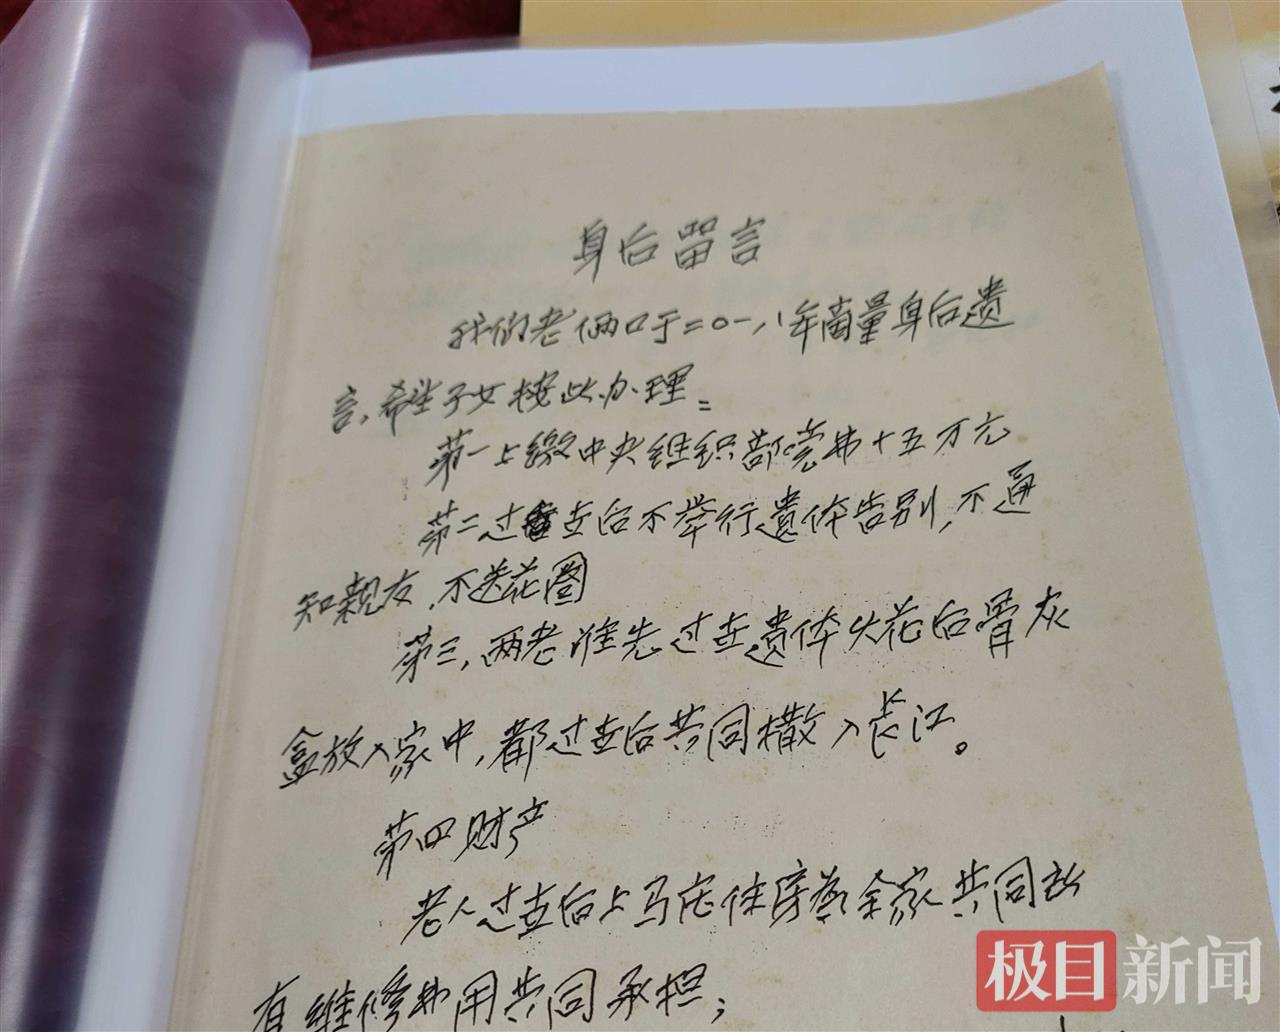 身后留言
我们老俩口于二〇一八年商量身后遗
言,希望子女按此办理:
第一上缴中央组织部党费十五万元
第二过世后不举行遗体告别,不通
知亲友,不送花圈
第三,两老谁先过世遗体火花后骨灰
盒放入家中,都过世后共同撒入长江。
第四财产
老人过世后上马庄住房蔡全家共同所
有维修费用共同承担;
极目新闻